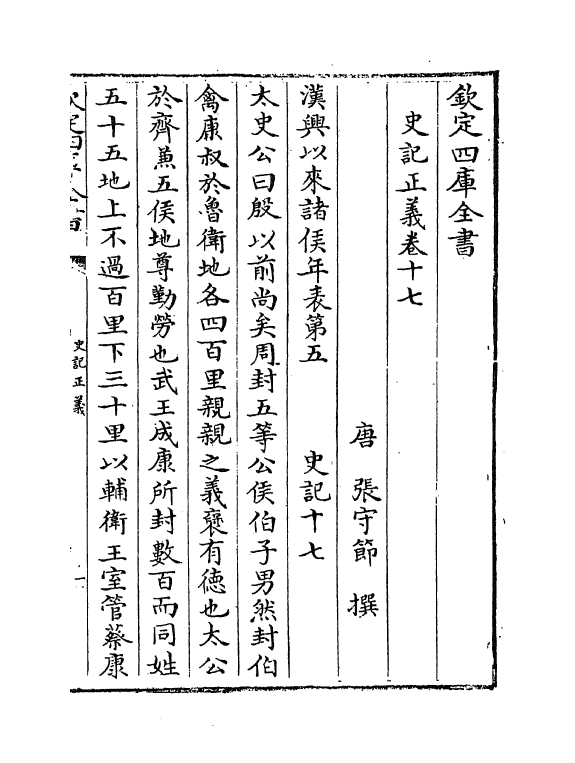 欽定四庫全書
史記正義卷十七
唐 張守節 撰
漢興以來諸侯年表第五 史記十七
太史公曰殷以前尚矣周封五等公侯伯子男然封伯
禽康叔於魯衛地各四百里親親之義襃有德也太公
於齊兼五侯地尊勤勞也武王成康所封數百而同姓
五十五地上不過百里下三十里以輔衛王室管蔡康
史記正義
一